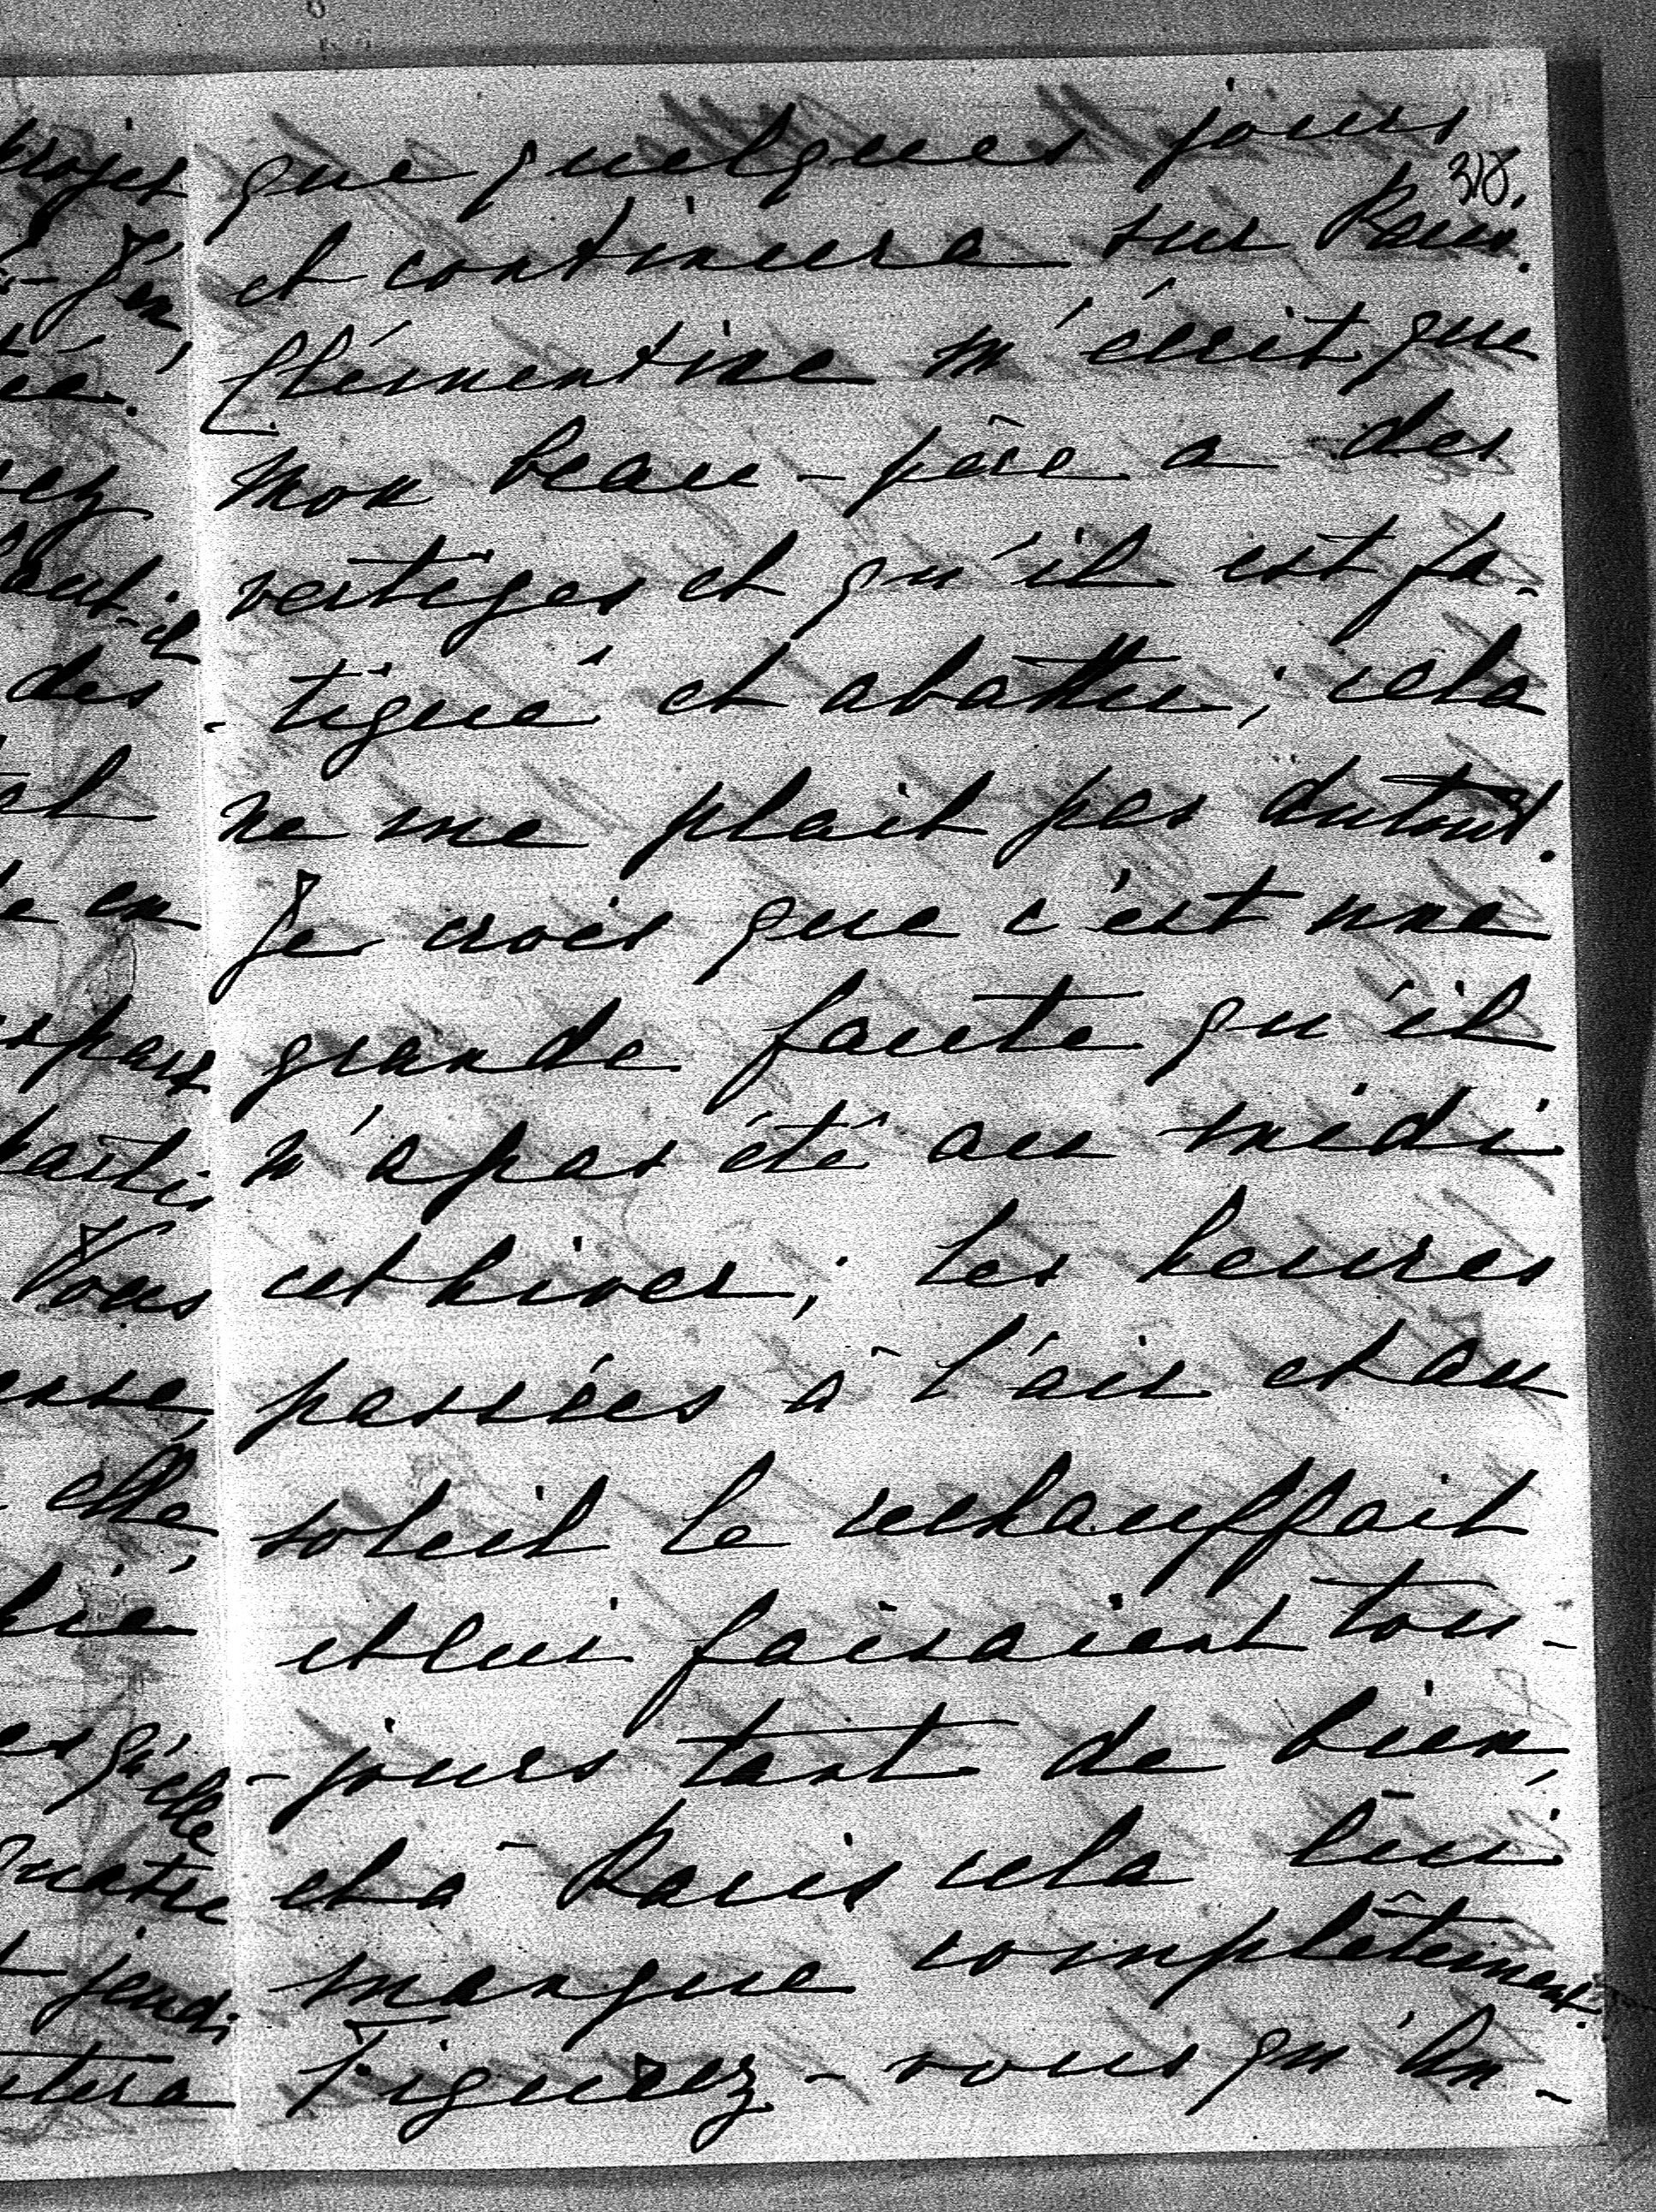 318.
que quelques jours
et continuera sur Paris.
Clémentine m'écrit que
mon beau-père a des
vertiges et qu'il est fa-
-tigué et abattu; cela
ne me plait pas dutout.
Je crois que c'est une
grande faute qu'il
n'a pas été au midi
cet hiver; les heures
passées à l'air et au
soleil le rechauffait
et lui faisaient tou-
-jours tant de bien,
et à Paris cela lui
manque complêtement.
Figurez-vous qu'An-
projet
J'en
Faut-il
des
en
parti
Vous
elle
qu'elle
quatre
jeudi